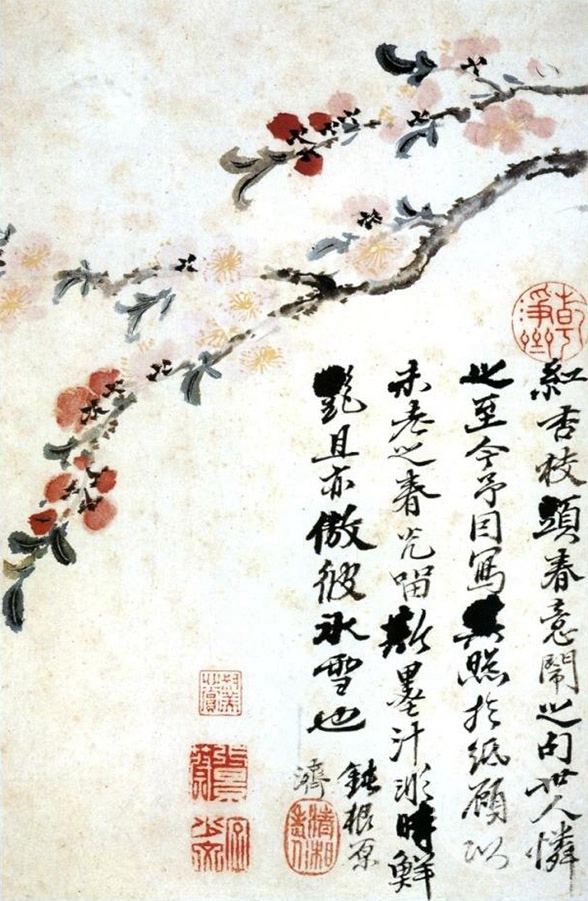 紅杏枝頭春意鬧之句世人憐
之至今予因寫其照於紙顧以
未老之春光留斯墨汁時鮮
豔且亦傲彼冰雪也
鈍根原
濟
清湘老人